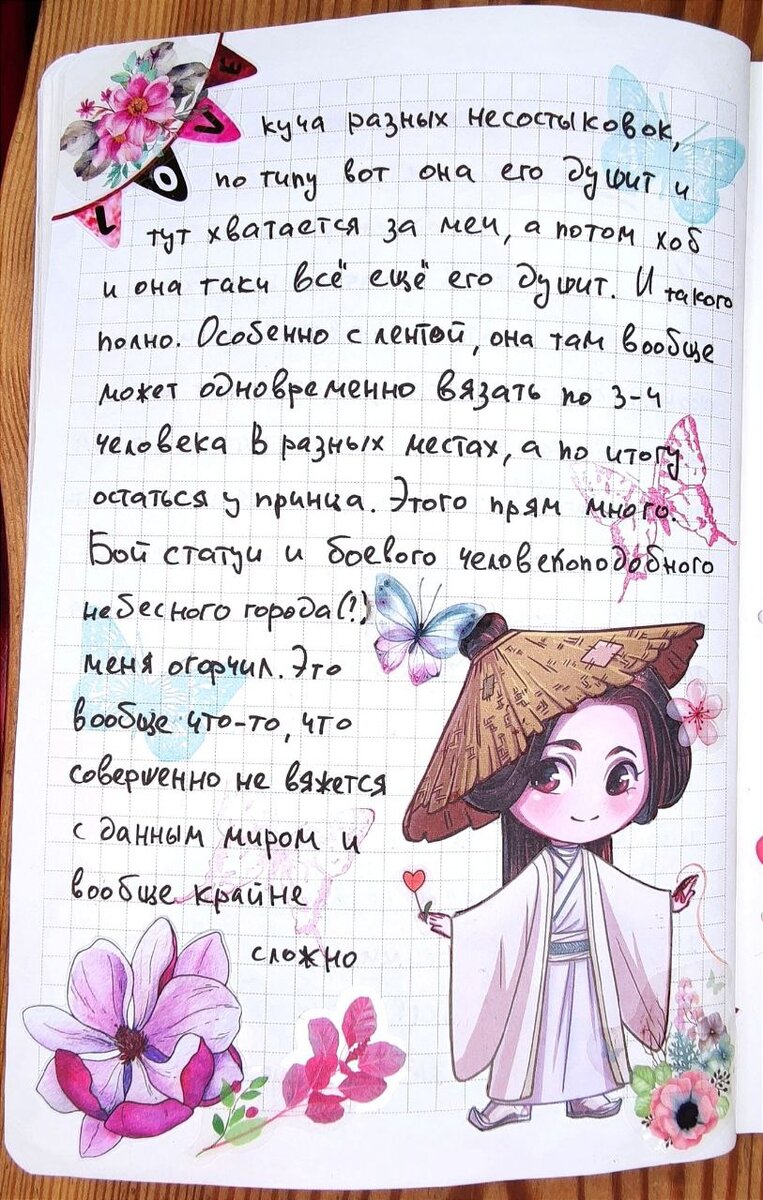 LOVE
куча разных несостыковок,
по типу вот она его душит и
тут хватается за меч, а потом хоб
и она таки всё ещё его душит. И такого
полно. Особенно с лентой, она там вообще
может одновременно вязать по 3-4
человека в разных местах, а по итогу
остаться у принца. Этого прям много.
Бой статуи и боевого человекоподобного
небесного города(?)
меня огорчил. Это
вообще что-то, что
совершенно не вяжется
с данным миром и
вообще крайне
сложно